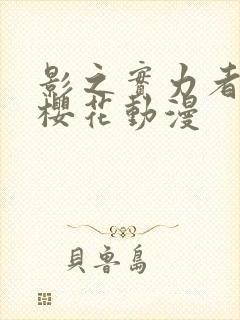 影之實力者
櫻花動漫
貝魯島